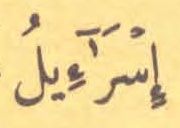 إِسْرَآءِيلُ